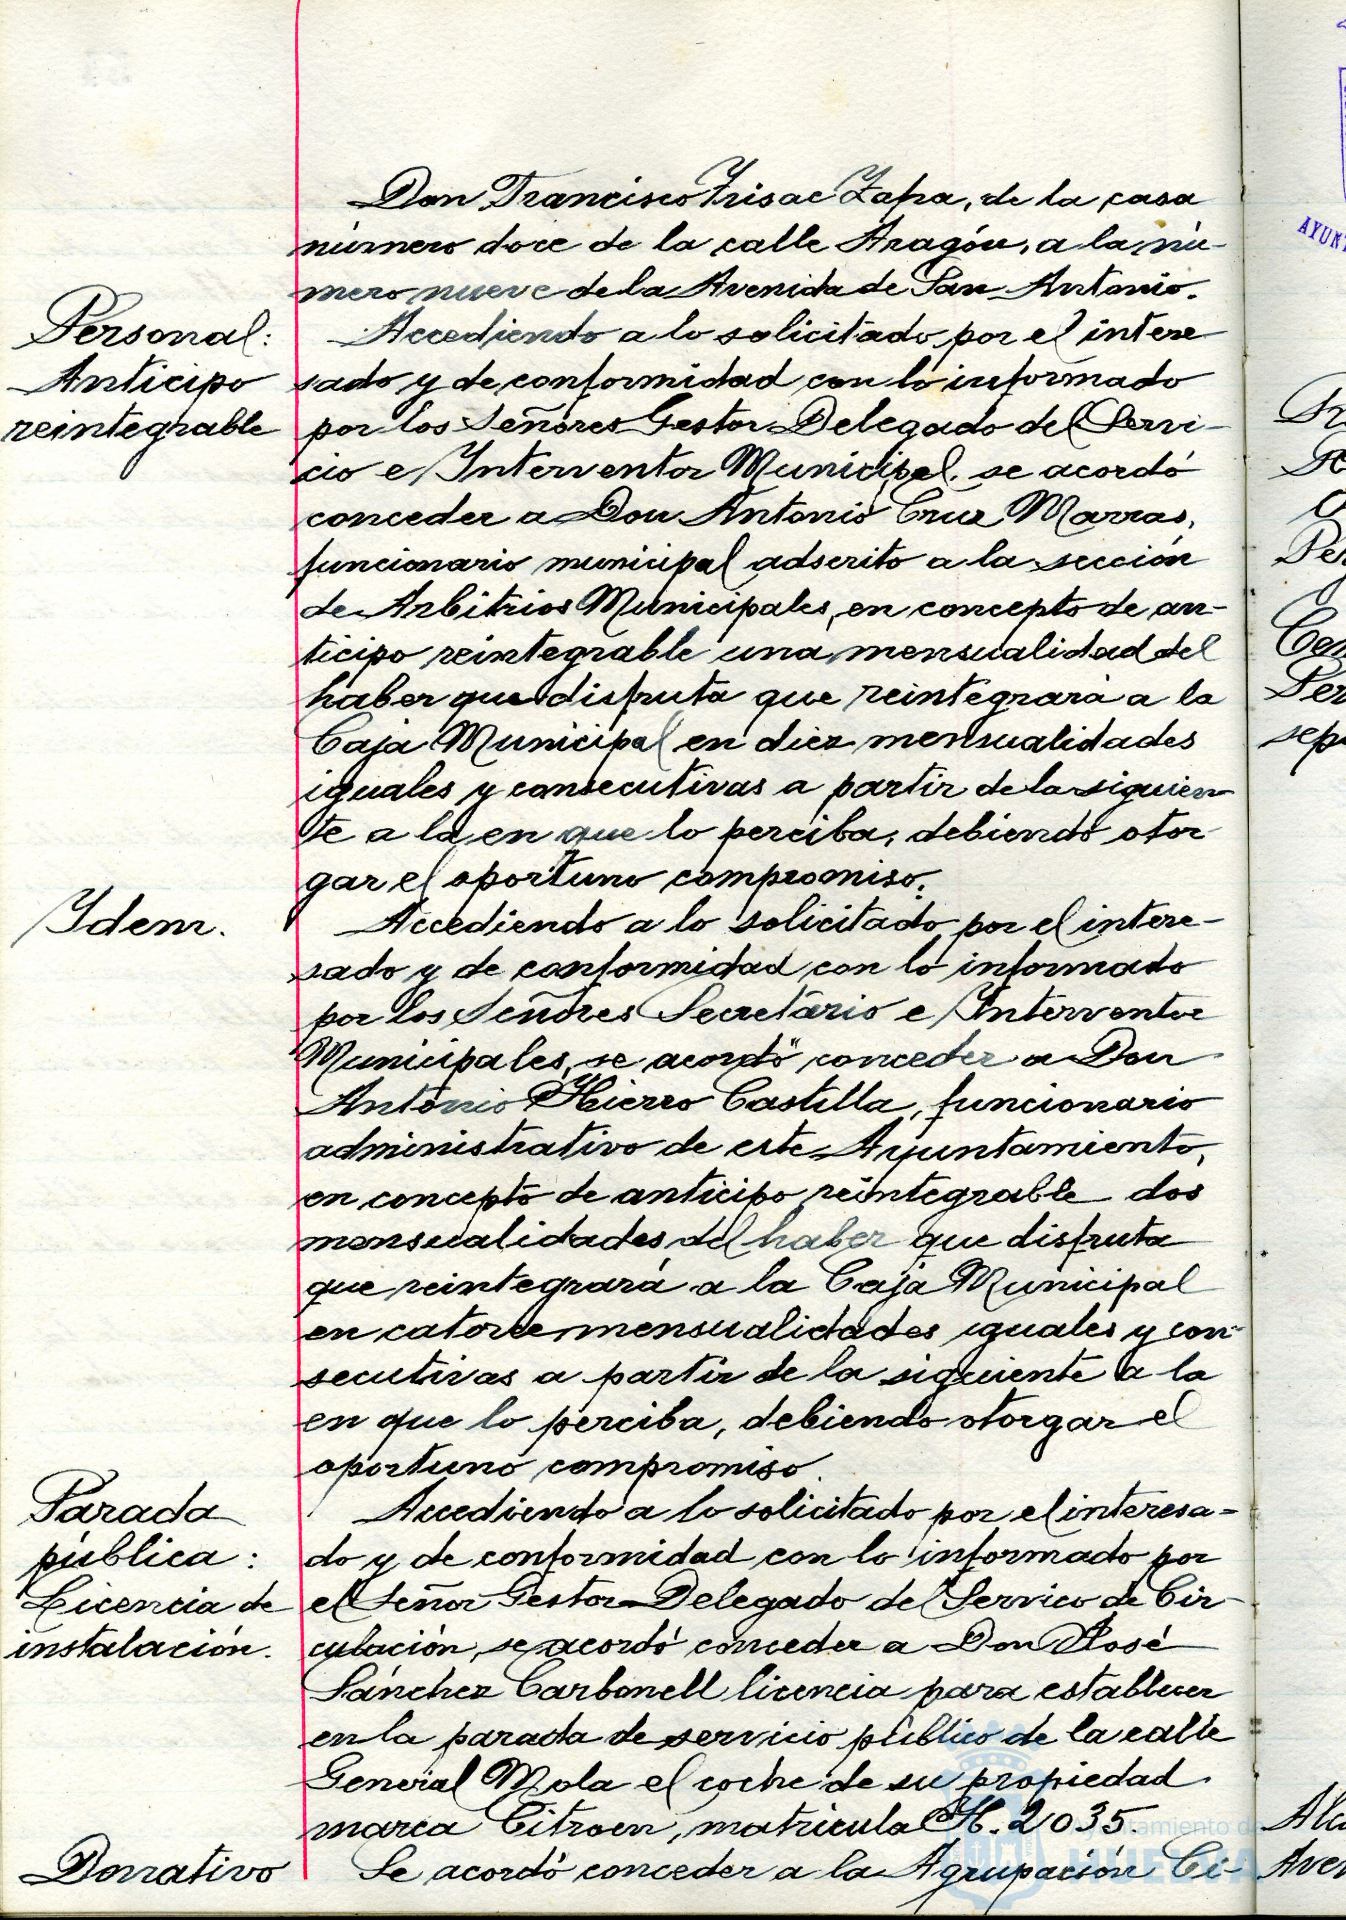 Don Francisco Yrisac Zapa, de la casa
número doce de la calle Aragón, a la nú-
mero nueve de la Avenida de San Antonio.
Personal:
Anticipo
reintegrable
Accediendo a lo solicitado por el intere
sado y de conformidad con lo informado
por los Señores Gestor Delegado del Servi-
cio e Interventor Municipal, se acordó
conceder a Don Antonio Cruz Marras,
funcionario municipal adscrito a la sección
de Arbitrios Municipales, en concepto de an-
ticipo reintegrable una mensualidad del
haber que disfruta que reintegrará a la
Caja Municipal en diez mensualidades
iguales y consecutivas a partir de la siguien
te a la en que lo perciba, debiendo otor
gar el oportuno compromiso.
Ydem.
Accediendo a lo solicitado por el intere-
sado y de conformidad con lo informado
por los Señores Secretario e Interventor
Municipales, se acordó conceder a Don
Antonio Hierro Castilla, funcionario
administrativo de este Ayuntamiento,
en concepto de anticipo reintegrable dos
mensualidades del haber que disfruta
que reintegrará a la Caja Municipal
en catorce mensualidades iguales y con-
secutivas a partir de la siguiente a la
en que lo perciba, debiendo otorgar el
oportuno compromiso.
Parada
pública:
Licencia de
instalación.
Accediendo a lo solicitado por el interesa-
do y de conformidad con lo informado por
el Señor Gestor Delegado del Servico de Cir-
culación, se acordó conceder a Don José
Sánchez Carbonell licencia para establecer
en la parada de servicio público de la calle
General Mola el coche de su propiedad
marca Citroen, matricula H. 2035.
Donativo
Se acordó conceder a la Agrupación Ci-
Ayuntamiento de
HUELVA